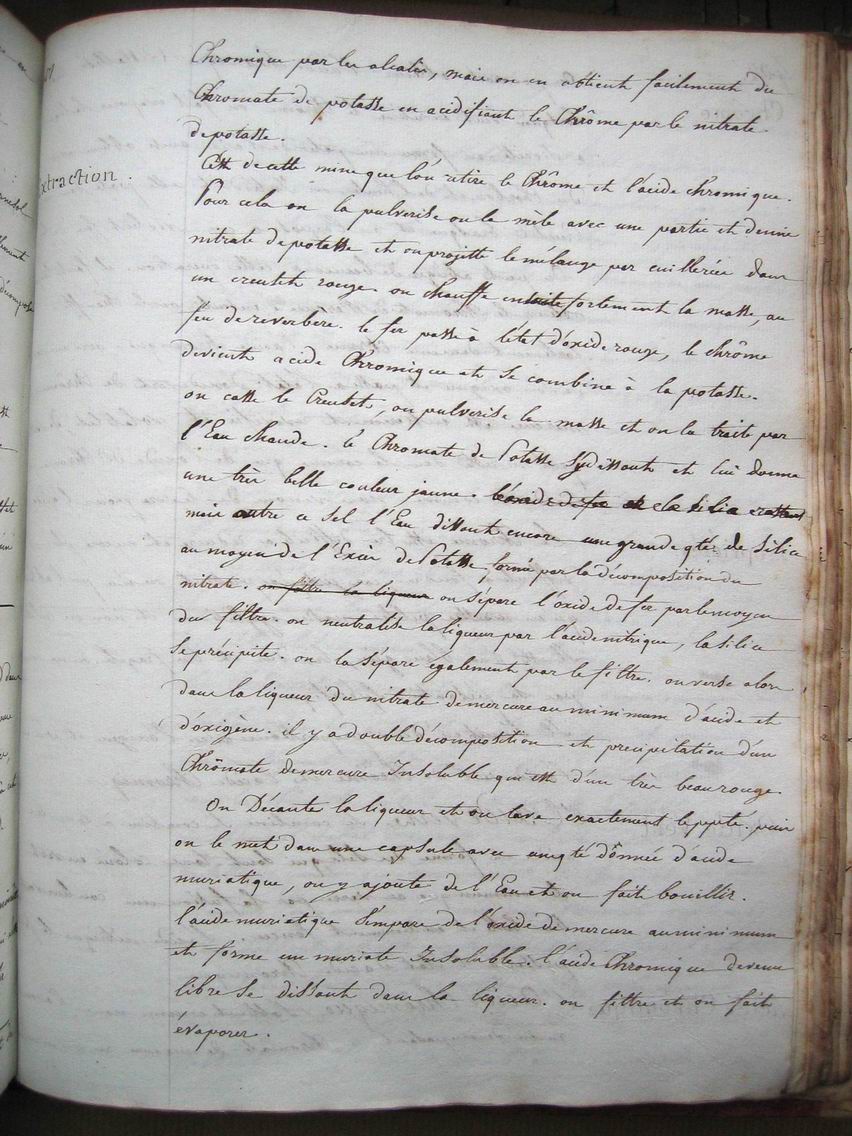 Chromique par les alcalis, mais on en obtient facilement du
Chromate de potasse en acidifiant le Chrôme par le nitrate
de potasse.
Extraction.
C'est de cette mine que l'on retire le Chrôme et l'acide chromique.
Pour cela on la pulverise on la mêle avec une partie et demie
nitrate de potasse et on projette le mélange par cuillerées dans
un creuset rouge. on chauffe ensuite fortement la masse, au
feu de reverbere. le fer passe à l'etat d'oxide rouge, le chrôme
devient acide Chromique et se combine à la potasse.
on casse le Creuset, on pulverise la masse et on la traite par
l'Eau chaude. le Chromate de Potasse s'y dissout et lui donne
une très belle couleur jaune. l'oxide de fer et la silice restent
mais outre ce sel l'Eau dissout encore une grande qté de silice
au moyen de l'Excès de Potasse formé par la décomposition du
nitrate. on filtre la liqueur on sépare l'oxide de fer par le moyen
du filtre. on neutralise la liqueur par l'acide nitrique, la silice
se précipite. on la sépare également par le filtre. on verse alors
dans la liqueur du nitrate de mercure au minimum d'acide et
d'oxigène. il y a double décomposition et precipitation d'un
Chrômate de mercure Insoluble qui est d'un très beau rouge.
On Décante la liqueur et on lave exactement le ppté. puis
on le met dans une capsule avec une qté donnée d'acide
muriatique, on y ajoute de l'Eau et on fait bouillir.
l'acide muriatique s'empare de l'oxide de mercure au minimum
et forme un muriate Insoluble. l'acide Chromique devenu
libre se dissout dans la liqueur. on filtre et on fait
évaporer.